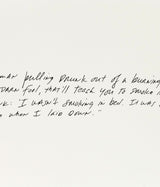 man pulling drunk out of a burning
darn fool, that'll teach you to smoke i
k: I wasn't smoking in bed. It was
n when I laid down."